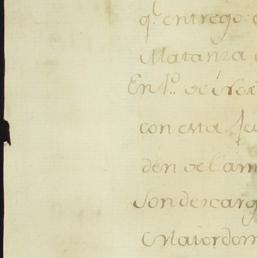 q.e entrego
Matanza
En 1.o de Nov
con esta fe
den del am
son descarg
Maiordom